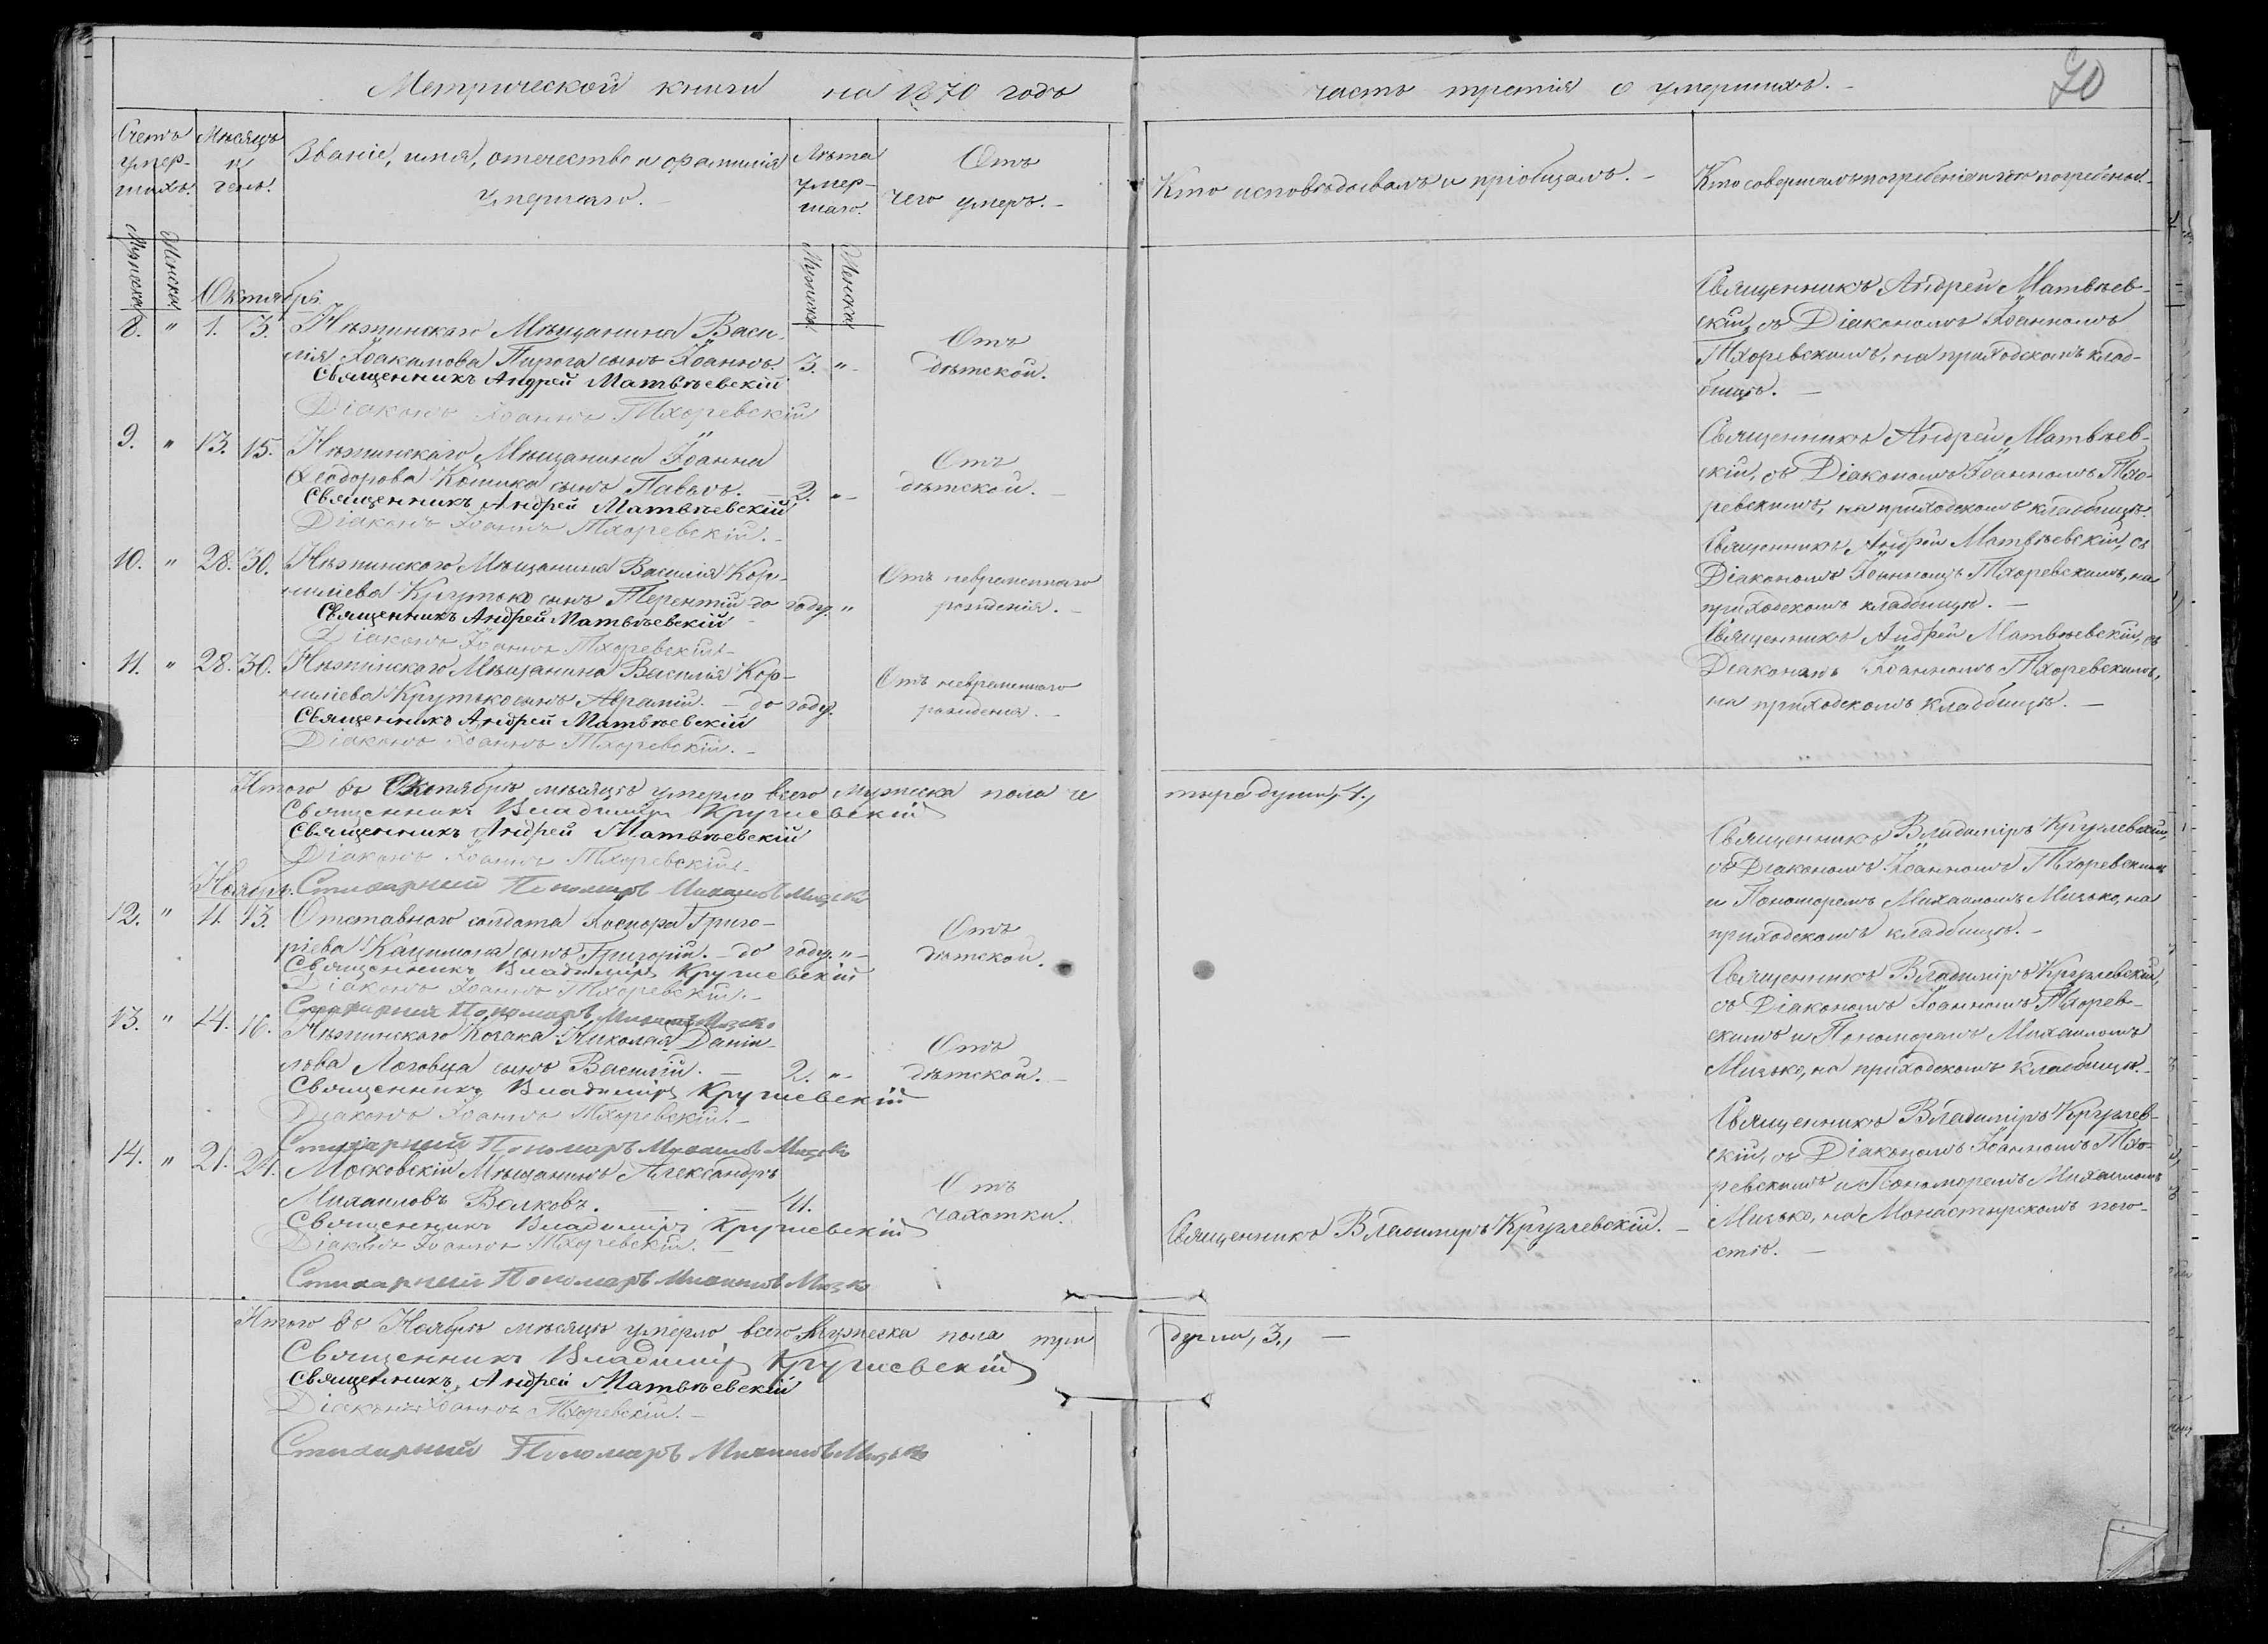 Метрической книги на 1870 годъ
часть третія о умершихъ.
70
Счетъ умер-шихъ.
Мѣсяцъ и день.
Званіе, имя, отечество и фамилія умершаго.
Лѣта умер-шаго.
Отъ чего умеръ.
Кто исповѣдывалъ и пріобщалъ.
Кто совершалъ погребеніе и гдѣ погребены.
Мужеска
Женска
Мужеска
Женска
Октябрь
8. " 1. 3. Нѣжинскаго Мѣщанина Васи-
лія Іоакимова Пирога сынъ Іоаннъ. 3. "
Отъ
дѣтской.
Священникъ Андрей Матвѣевскій
Діаконъ Іоаннъ Тхоревскій
Священникъ Андрей Матвѣев-
скій, съ Діакономъ Іоанномъ
Тхоревскимъ, на приходскомъ клад-
бищѣ.
9. " 13. 15. Нѣжинскаго Мѣщанина Іоанна
Ѳеодорова Кошика сынъ Павелъ. 2. "
Отъ
дѣтской.
Священникъ Андрей Матвѣевскій
Діаконъ Іоаннъ Тхоревскій.
Священникъ Андрей Матвѣев-
скій, съ Діакономъ Іоанномъ Тхо-
ревскимъ, на приходскомъ кладбищѣ.
10. " 28. 30. Нѣжинскаго Мѣщанина Василія Кор-
нилієва Крутько сынъ Терентій до году. "
Отъ невременнаго
рожденія.
Священникъ Андрей Матвѣевскій
Діаконъ Іоаннъ Тхоревскій
Священникъ Андрей Матвѣевскій, съ
Діакономъ Іоанномъ Тхоревскимъ, на
приходскомъ кладбищѣ.
11. " 28. 30. Нѣжинскаго Мѣщанина Василія Кор-
нилієва Крутько сынъ Аврамій. до году.
Отъ невременнаго
рожденія.
Священникъ Андрей Матвѣевскій
Діаконъ Іоаннъ Тхоревскій.
Священникъ Андрей Матвѣевскій, съ
Діакономъ Іоанномъ Тхоревскимъ,
на приходскомъ кладбищѣ.
Итого въ Октябрѣ мѣсяцѣ умерло всего мужеска пола че
тыре души, 4.,
Священникъ Владиміръ Круглевскій
Священникъ Андрей Матвѣевскій
Діаконъ Іоаннъ Тхоревскій.
Стихарный Пономарь Михаилъ Мизько
Ноябрь.
12. " 11. 13. Отставнаго солдата Григо-
ріева сынъ Григорій. до году. "
Отъ
дѣтской.
Священникъ Владиміръ Круглевскій
Діаконъ Іоаннъ Тхоревскій.
Стихарный Пономарь Михаилъ Мизько
Священникъ Владиміръ Круглевскій,
съ Діакономъ Іоанномъ Тхоревскимъ
и Пономоремъ Михаиломъ Мизько, на
приходскомъ кладбищѣ.
13. " 14. 16. Нѣжинскаго Козака Николая Даніи-
лова Логовца сынъ Василій. 2. "
Отъ
дѣтской.
Священникъ Владиміръ Круглевскій
Діаконъ Іоаннъ Тхоревскій.
Стихарный Пономарь Михаилъ Мизько
Священникъ Владиміръ Круглевскій,
съ Діакономъ Іоанномъ Тхорев-
скимъ и Пономоремъ Михаиломъ
Мизько, на приходскомъ кладбищѣ.
14. " 21. 24. Московскій Мѣщанинъ Александръ
Михаиловъ Волковъ. 41.
Отъ
чахотки.
Священникъ Владиміръ Круглевскій
Діаконъ Іоаннъ Тхоревскій.
Стихарный Пономарь Михаилъ Мизько
Священникъ Владиміръ Круглевскій.
Священникъ Владиміръ Круглев-
скій, съ Діакономъ Іоанномъ Тхо-
ревскимъ и Пономоремъ Михаиломъ
Мизько, на Монастырскомъ пого-
стѣ.
Итого въ Ноябрѣ мѣсяцѣ умерло всего мужеска пола три
души, 3.,
Священникъ Владиміръ Круглевскій
Священникъ Андрей Матвѣевскій
Діаконъ Іоаннъ Тхоревскій.
Стихарный Пономарь Михаилъ Мизько